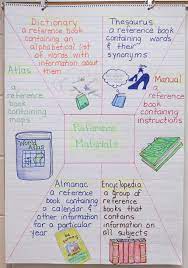 Dictionary
a reference book
containing an
alphabetical list
of words with
information about
them
Thesaurus
a reference book
containing words
& their
synonyms
Atlas
a
reference
book
containing
maps
World
Atlas
Manual
a reference
book
containing
instructions
Reference
Materials
Almanac
a reference
book containing
a calendar &
other information
for a particular
year
Encyclopedia
a group of
reference
books that
contains
information on
all subjects